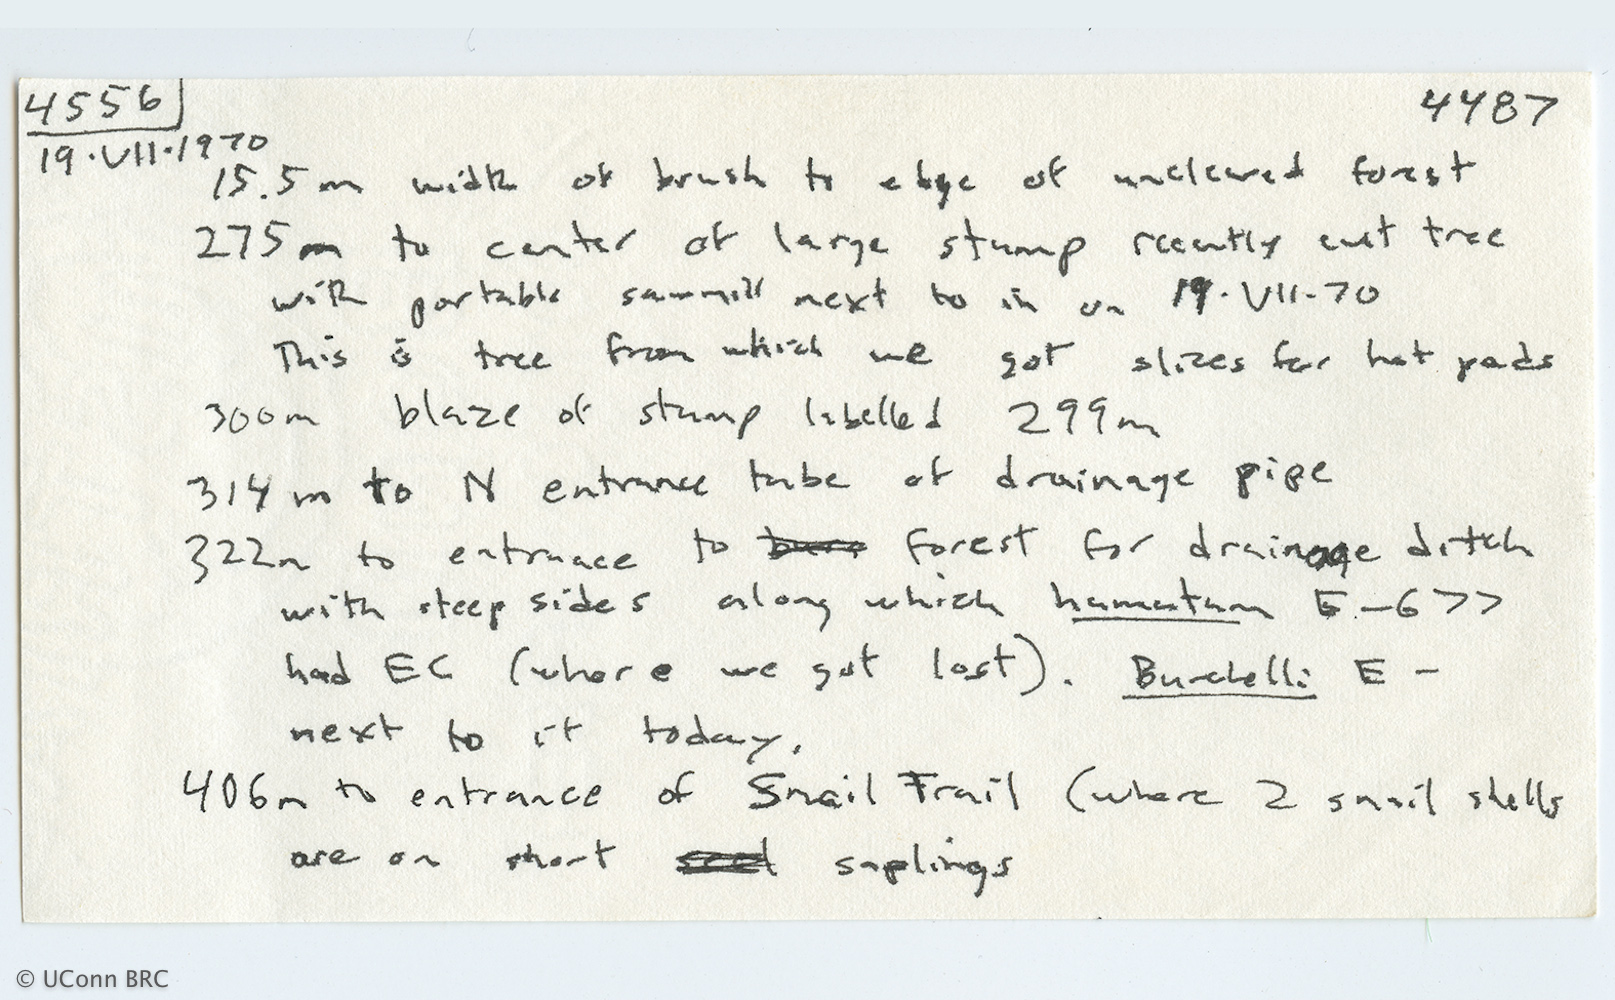 4556 4487
19.VII.1970
15.5m width of brush to edge of uncleared forest
275m to center of large stump recently cut tree
with portable sawmill next to in on 19.VII-70
This is tree from which we got slices for hot pads
300m blaze of stump labelled 299m
314m to N entrance tube of drainage pipe
322m to entrance to forest for drainage ditch
with steep sides along which hamatum E-6>>
had EC (where we got lost). Burchelli E-
next to it today.
406m to entrance of Snail Trail (where 2 snail shells
are on short saplings
© UConn BRC